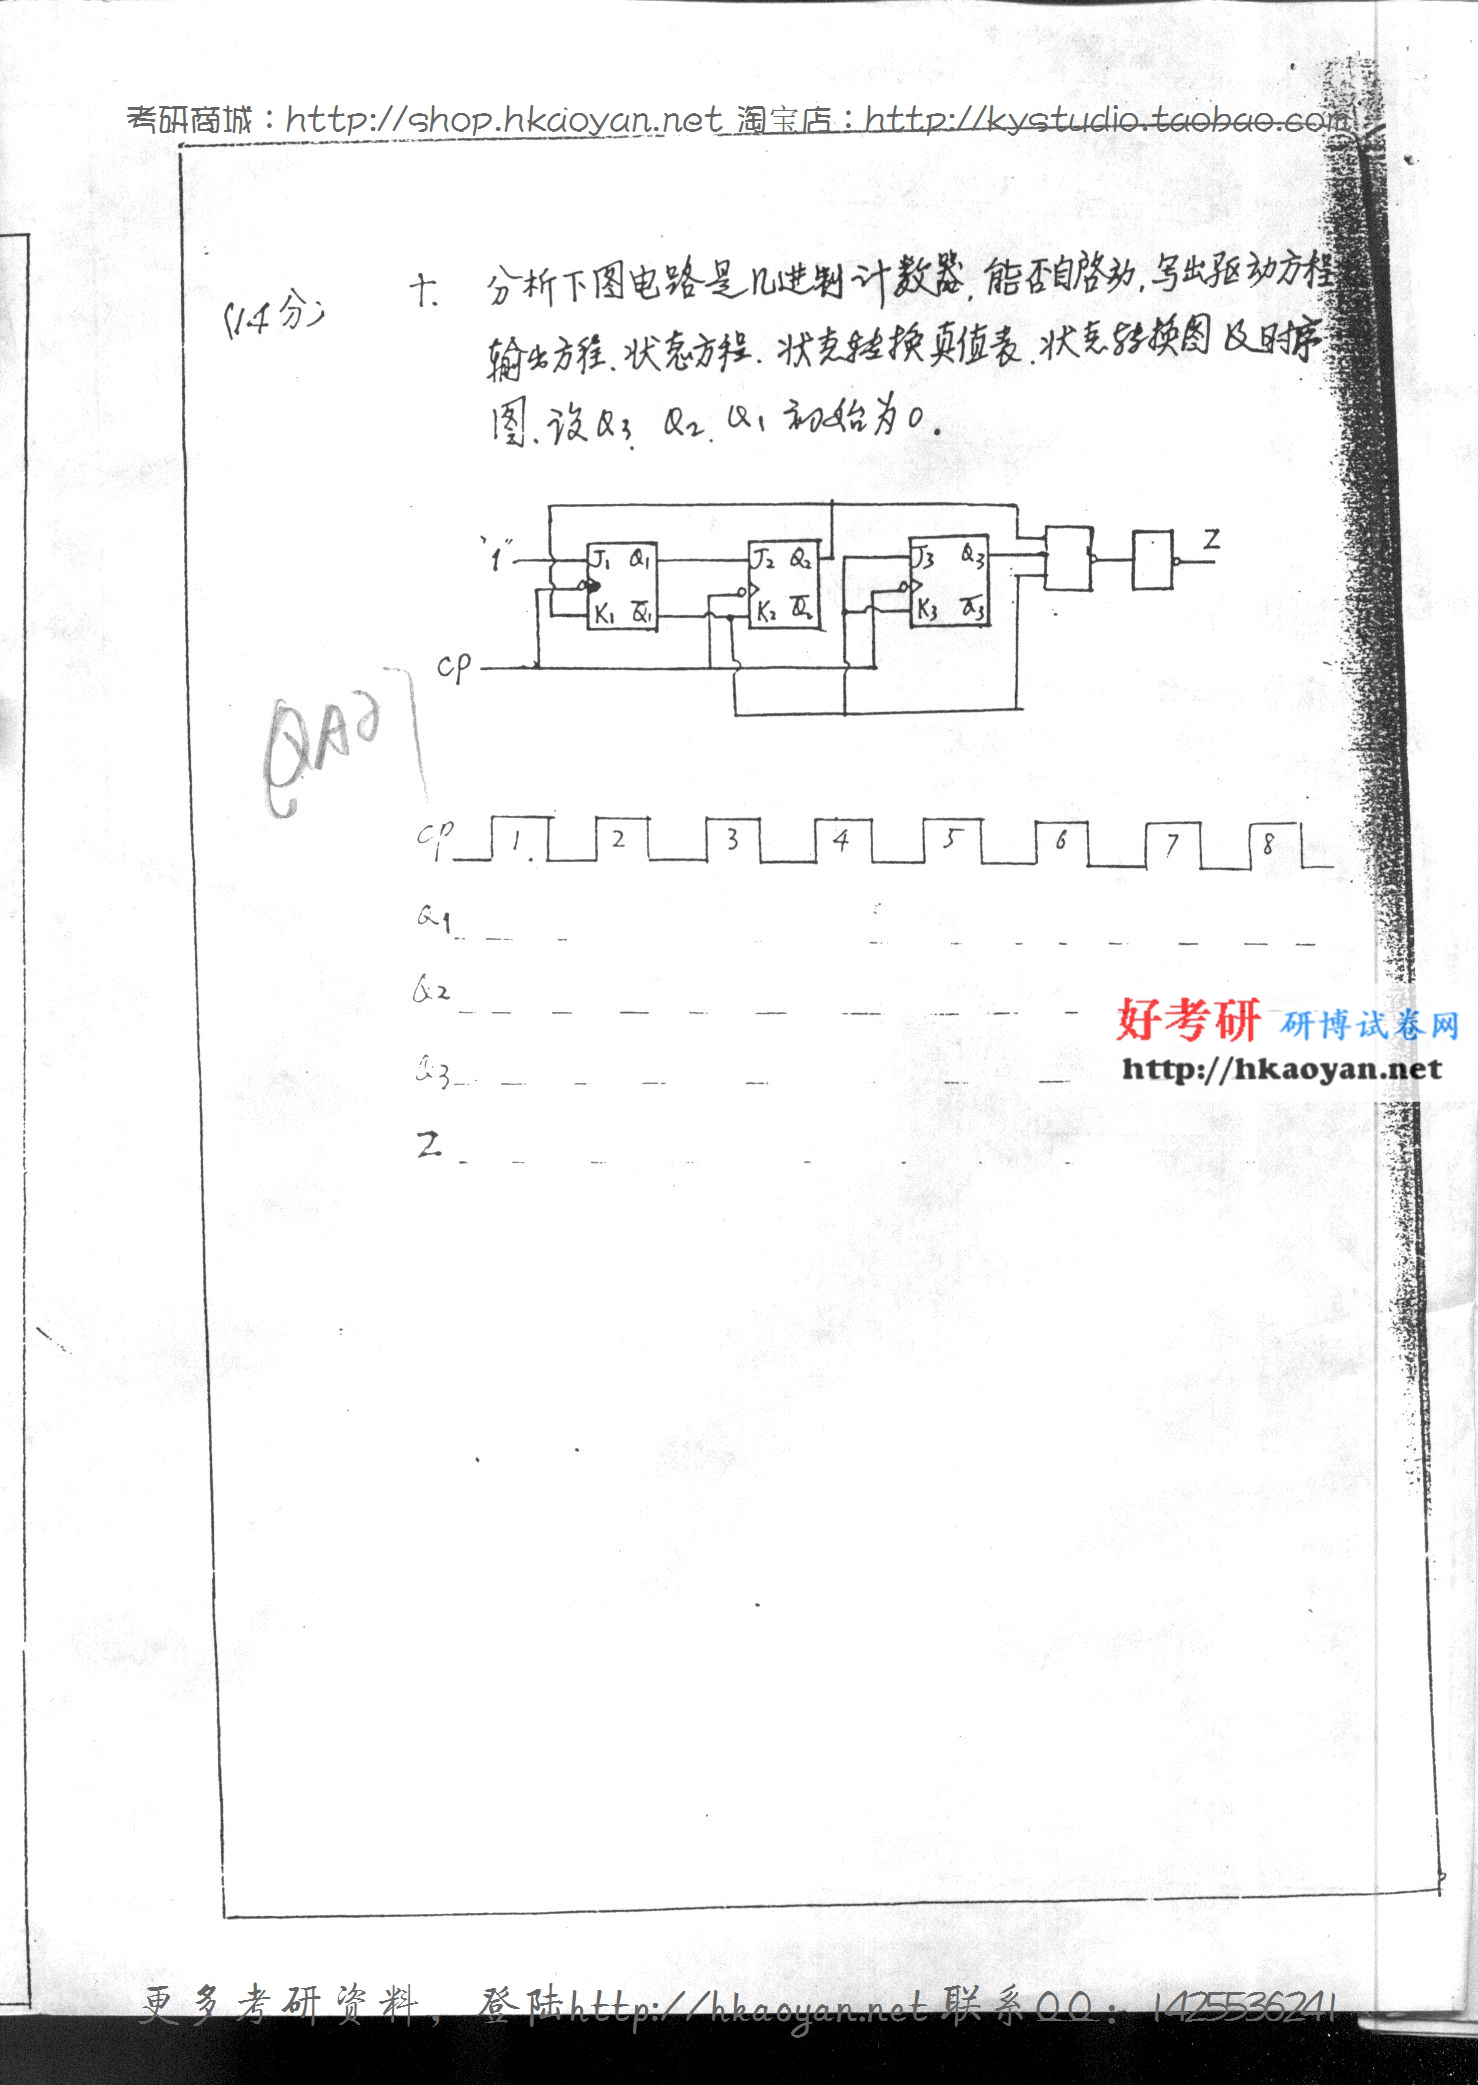 考研商城：http://shop.hkaoyan.net 淘宝店：http://kystudio.taobao.com
(14分)
十. 分析下图电路是几进制计数器，能否自启动，写出驱动方程
输出方程、状态方程、状态转换真值表、状态转换图及时序
图、设Q3、Q2、Q1 初始为0.
"1"
J1 Q1
K1 Q̅1
J2 Q2
K2 Q̅2
J3 Q3
K3 Q̅3
Z
CP
CP 1 2 3 4 5 6 7 8
Q1
Q2
Q3
Z
好考研 研博试卷网
http://hkaoyan.net
更多考研资料，登陆http://hkaoyan.net联系QQ：1425536241